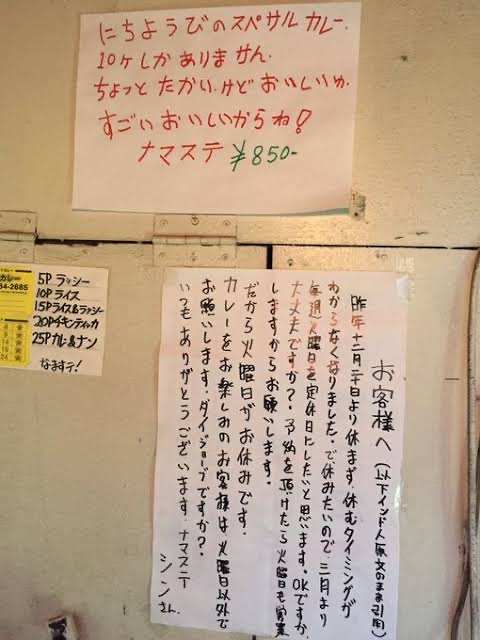 にちようびのスペサルカレー.
10ケしかありません.
ちょっとたかい.けどおいしいか.
すごいおいしいからね!
ナマステ ¥850-
カレー
84-2685
5P ラッシー
10P ライス
15Pライス&ラッシー
20Pチキンティカ
25Pカレー&ナン
なまステ!
お客様へ(以下インド人原文のまま引用)
昨年十二月二十日より休まず.休むタイミングが
わからなくなりました.で休みたいので.三月より
毎週火曜日を定休日にしたいと思います。OKですか.
大丈夫ですか?.予約を頂けたら火曜日も営業
しますからお願いします。
だから火曜日がお休みです.
カレーをお楽しみのお客様は火曜日以外で
お願いします.ダイジョーブですか?.
いつもありがとうございます.ナマステー
シンさん.